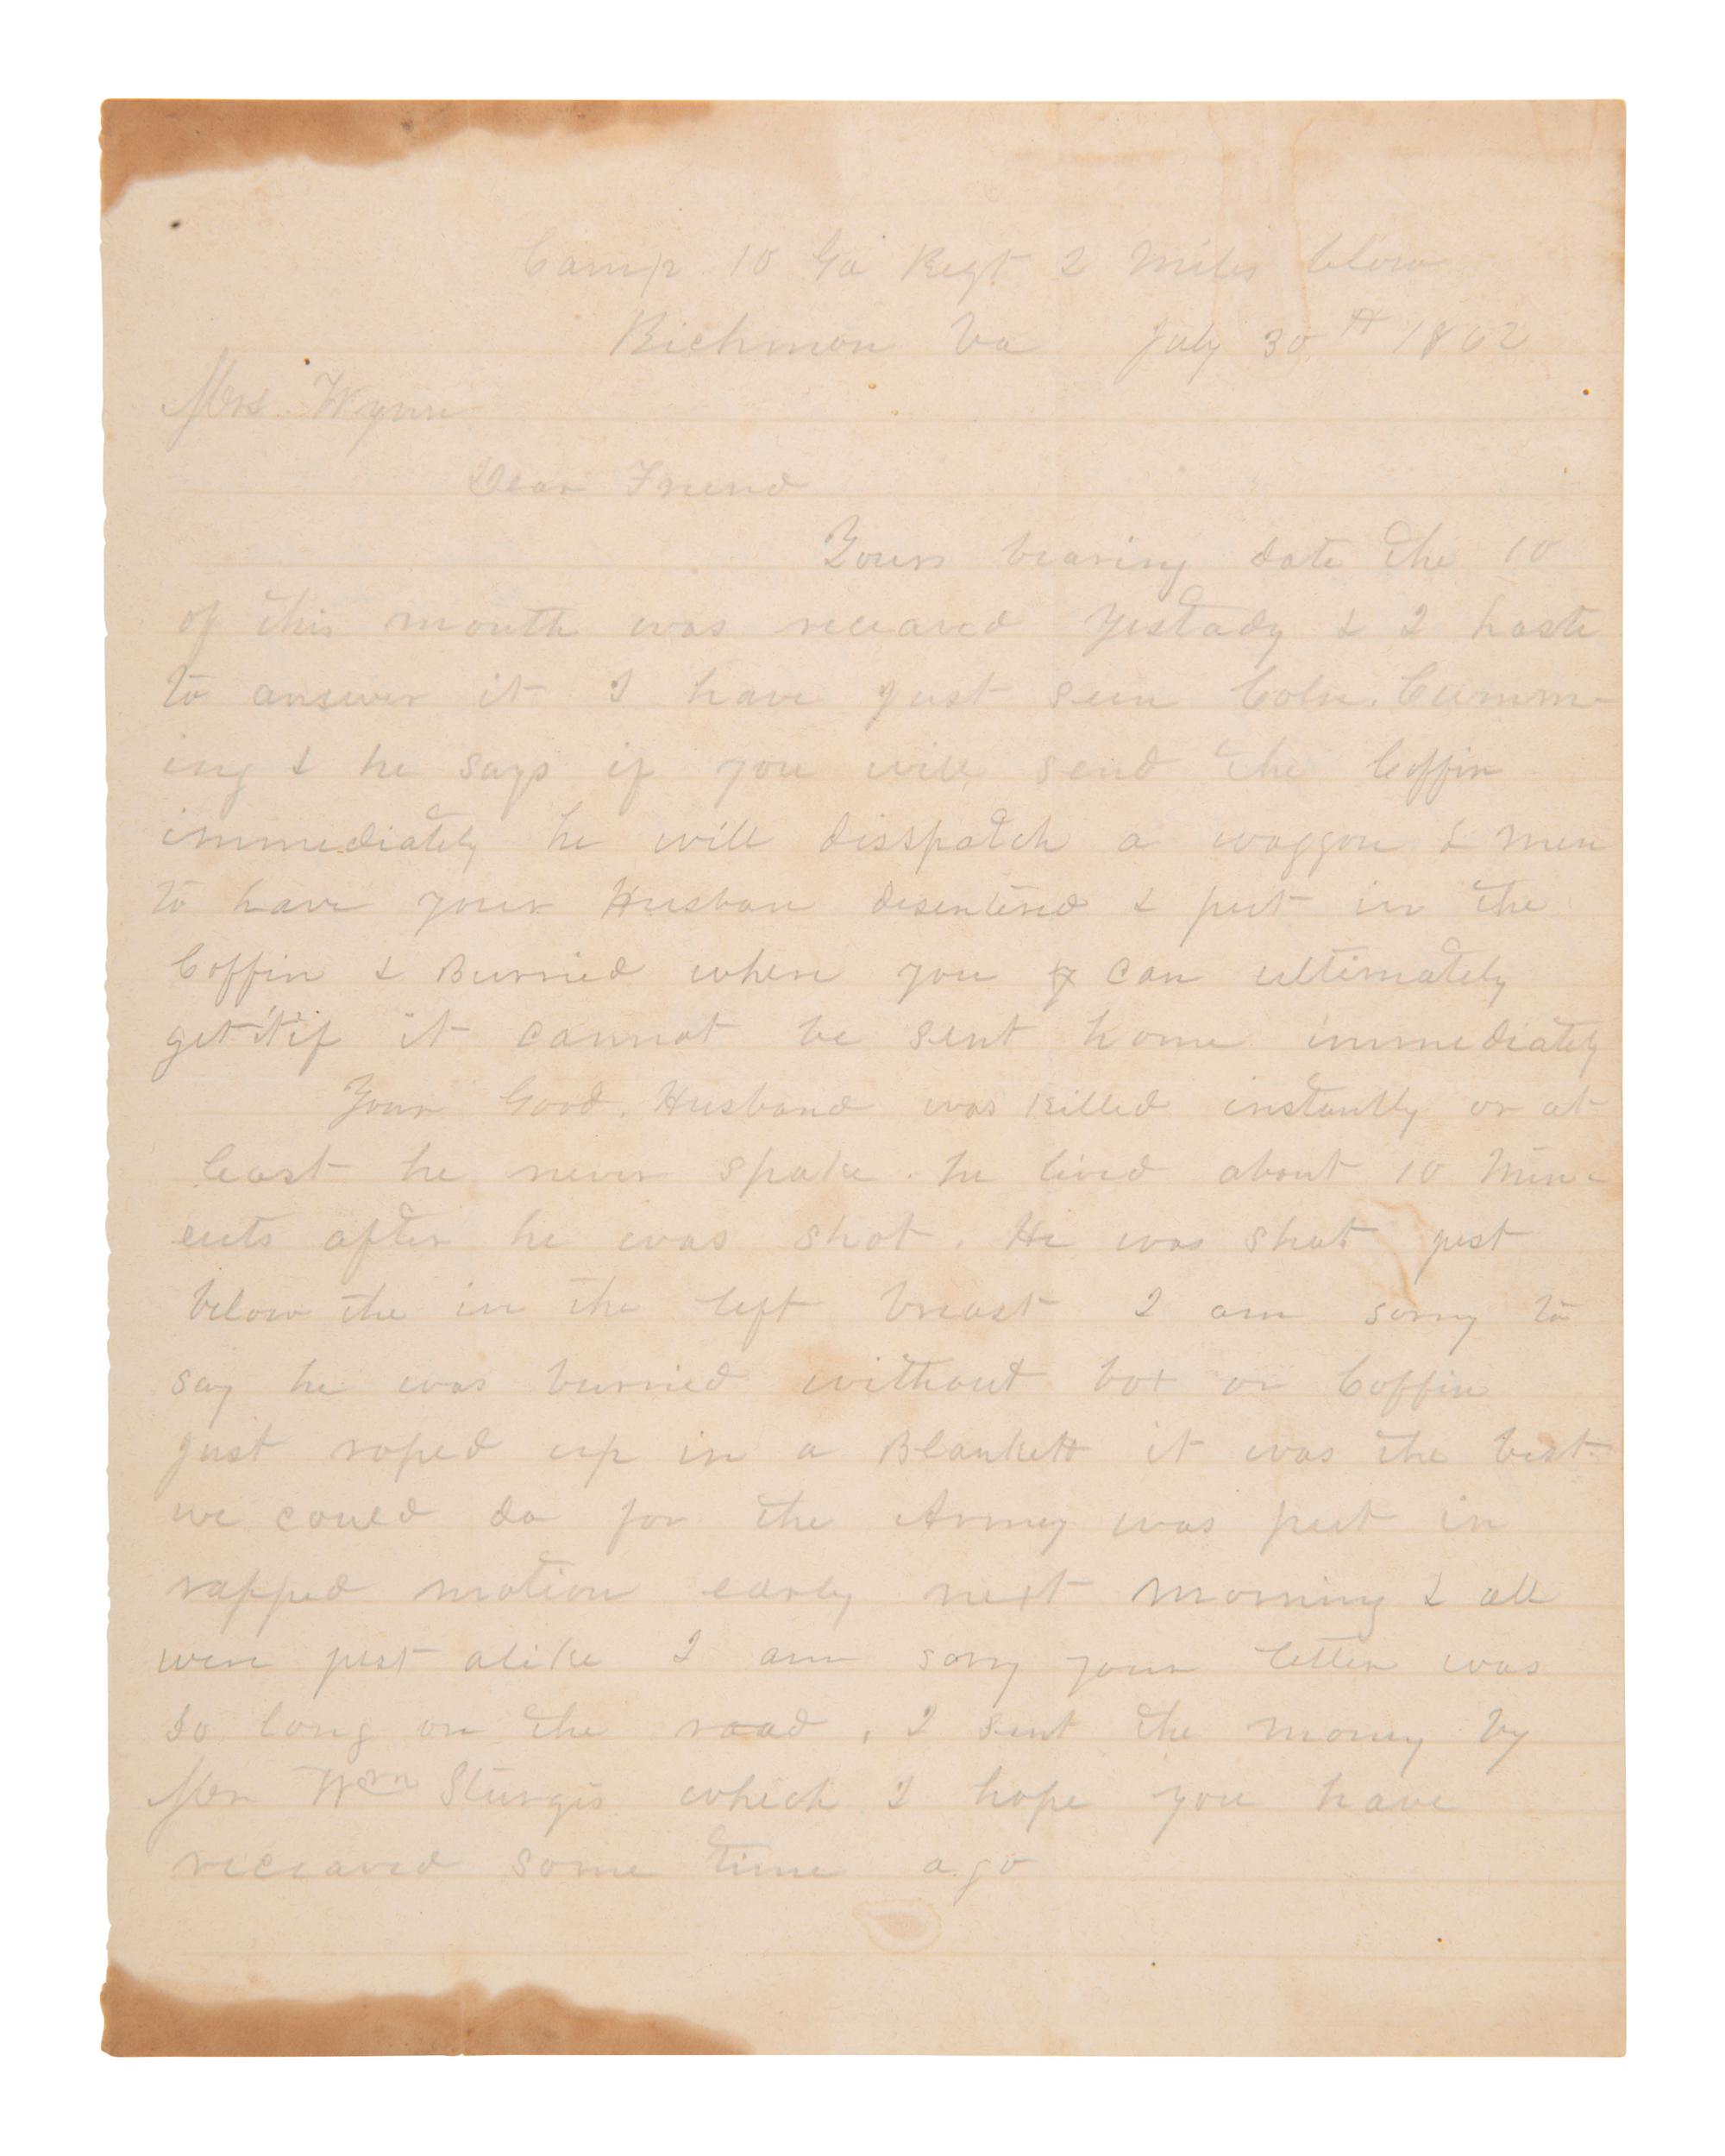 Camp 10 Ga Regt 2 Miles blow
Richmon Va July 30th 1862
Mrs. Wynn
Dear Friend
Yours bearing date the 10
of this month was receaved yestady & I haste
to answer it I have just seen Coln. Cumm-
ing & he says if you will send the Coffin
immediately he will disspatch a waggon & men
to have your Husban disentered & put in the
Coffin & Burried where you can ultimately
get it if it cannot be sent home immediately
Your Good. Husband was killed instantly or at
least he never spake. he lived about 10 Min-
euts after he was shot. He was shot just
below the in the left breast I am sorry to
say he was burried without box or Coffin
just roped up in a Blankett it was the best
we could do for the Armey was put in
rapped motion early next morning & all
were just alike I am sorry your letter was
so long on the road, I sent the money by
Mr Wm Sturgis which I hope you have
receaved some time ago